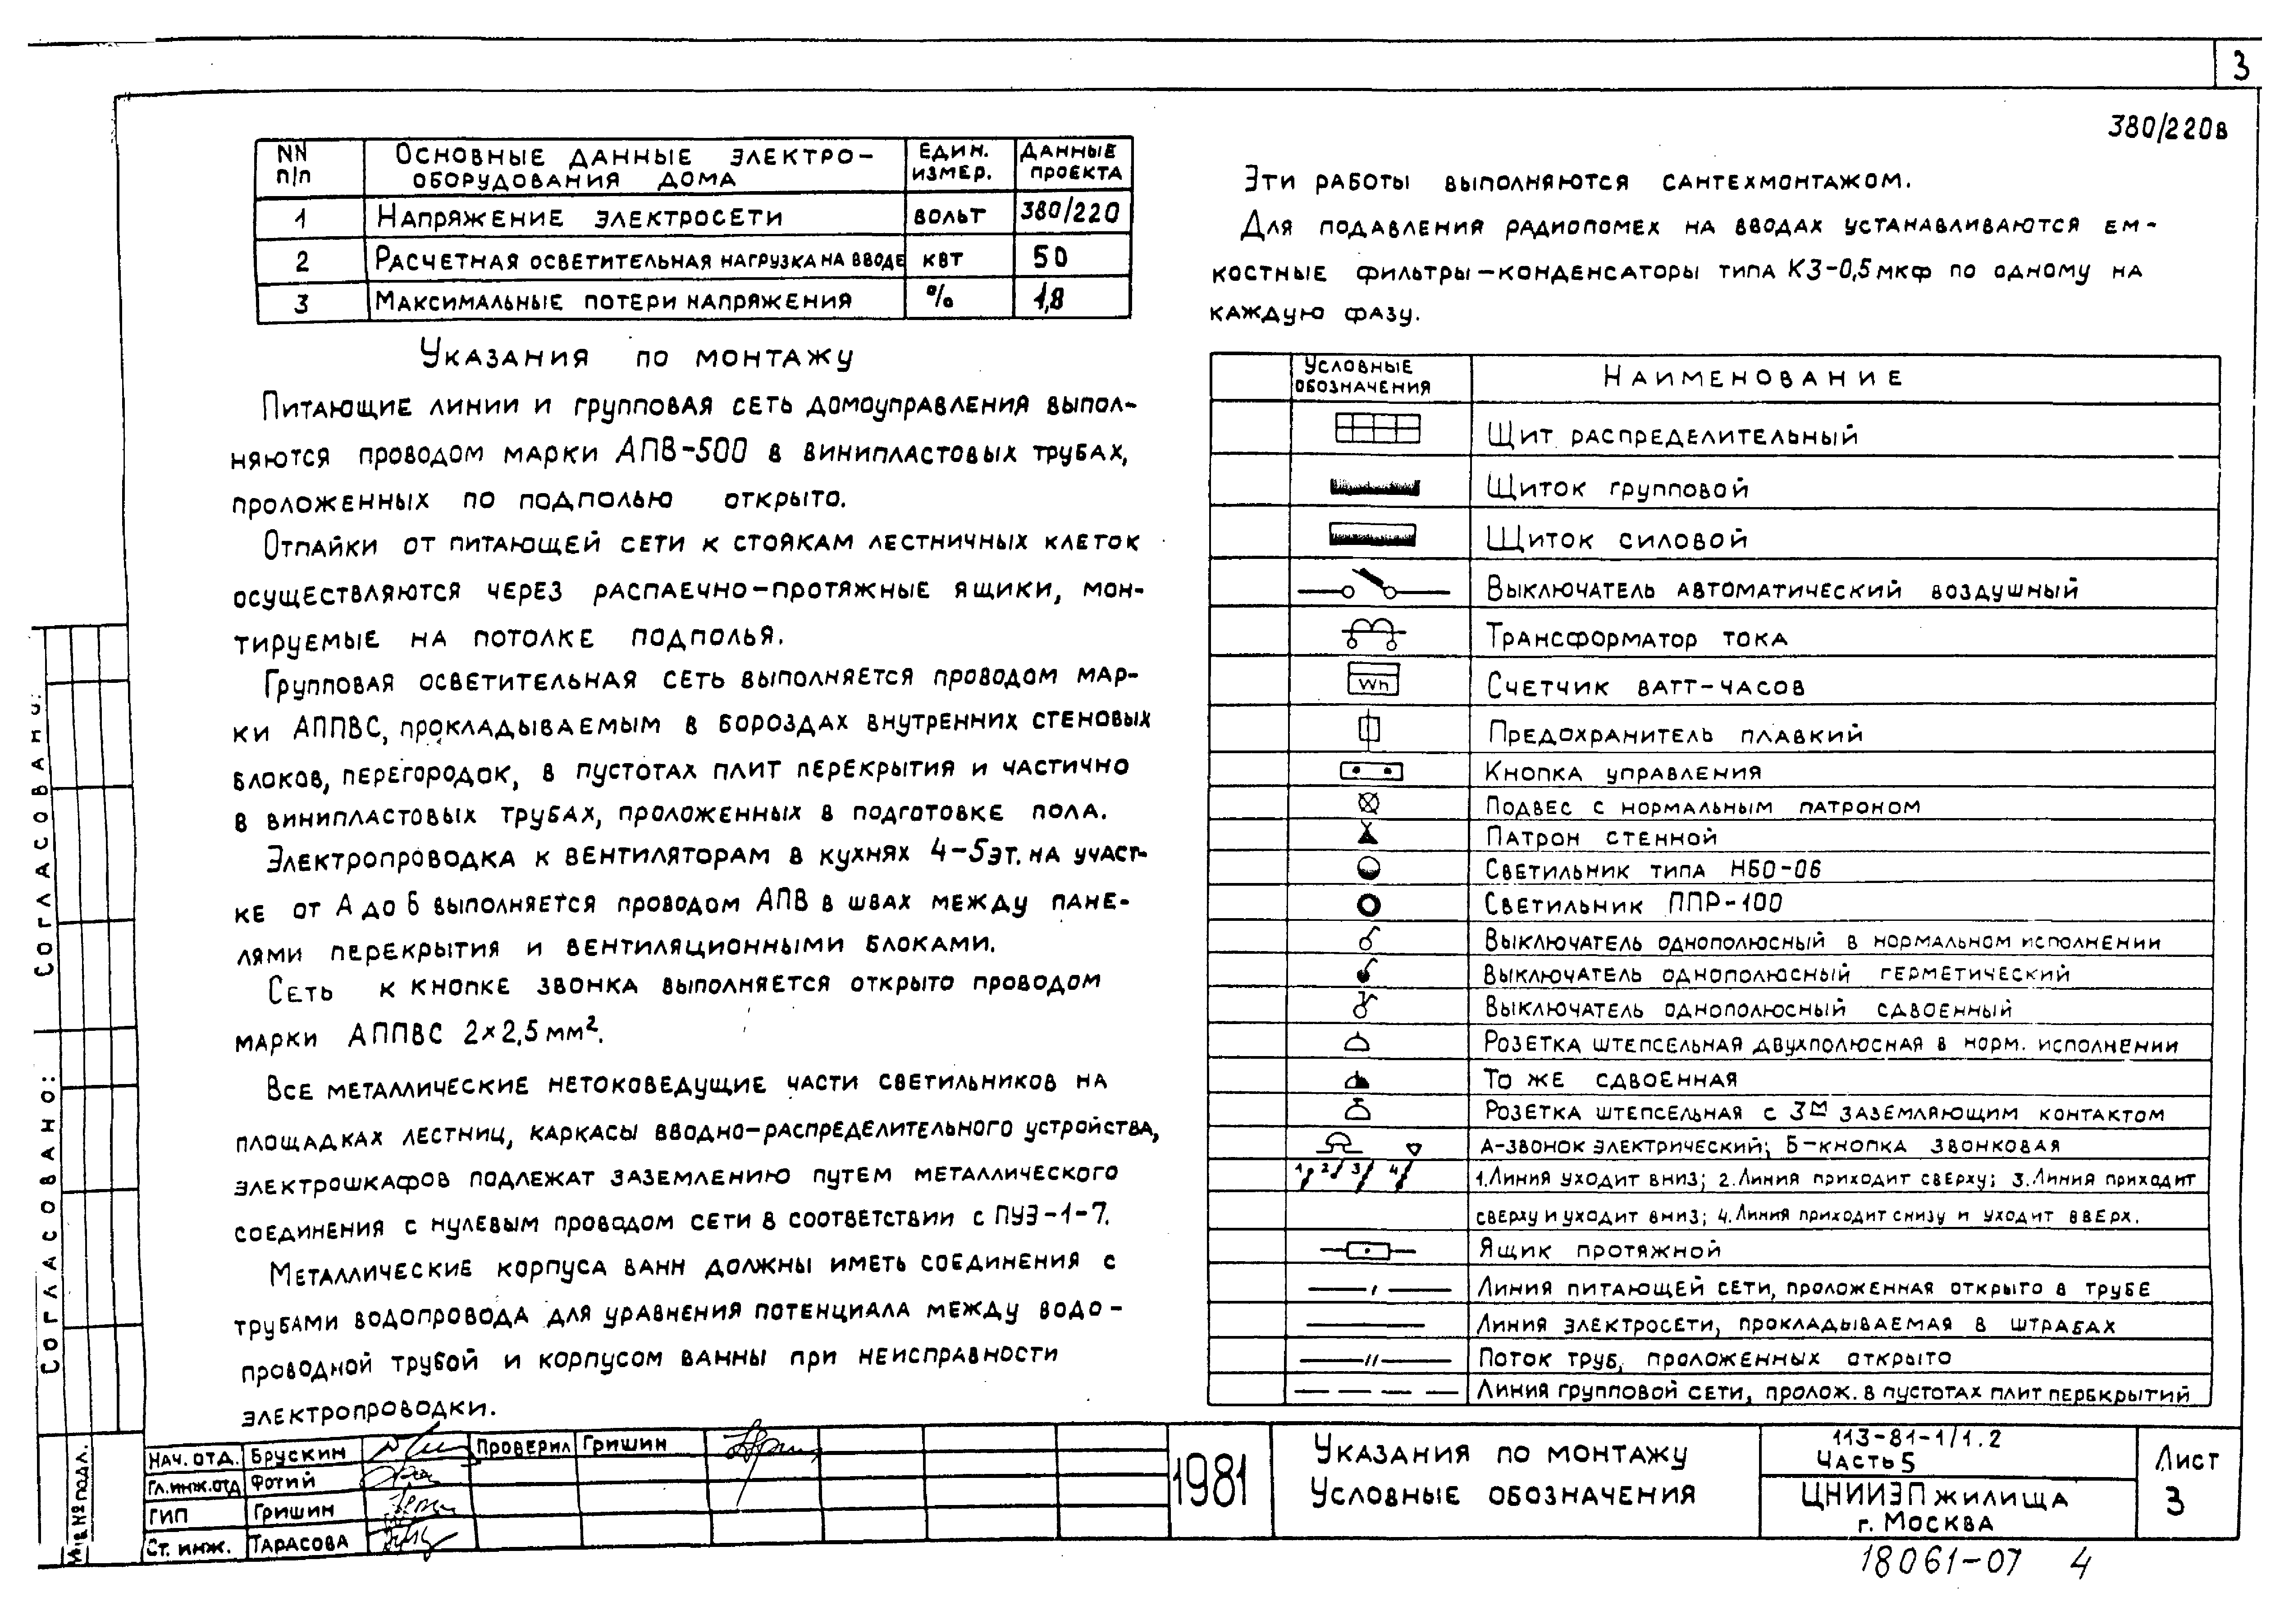 3
380/220в
NN п/п
Основные данные электро-
оборудования дома
Един. измер.
Данные проекта
1 Напряжение электросети вольт 380/220
2 Расчетная осветительная нагрузка на вводе квт 50
3 Максимальные потери напряжения % 1,8
Указания по монтажу
Питающие линии и групповая сеть домоуправления выпол-
няются проводом марки АПВ-500 в винипластовых трубах,
проложенных по подполью открыто.
Отпайки от питающей сети к стоякам лестничных клеток
осуществляются через распаечно-протяжные ящики, мон-
тируемые на потолке подполья.
Групповая осветительная сеть выполняется проводом мар-
ки АППВС, прокладываемым в бороздах внутренних стеновых
блоков, перегородок, в пустотах плит перекрытия и частично
в винипластовых трубах, проложенных в подготовке пола.
Электропроводка к вентиляторам в кухнях 4-5эт. на участ-
ке от А до Б выполняется проводом АПВ в швах между пане-
лями перекрытия и вентиляционными блоками.
Сеть к кнопке звонка выполняется открыто проводом
марки АППВС 2×2,5 мм².
Все металлические нетоковедущие части светильников на
площадках лестниц, каркасы вводно-распределительного устройства,
электрошкафов подлежат заземлению путем металлического
соединения с нулевым проводом сети в соответствии с ПУЭ-1-7.
Металлические корпуса ванн должны иметь соединения с
трубами водопровода для уравнения потенциала между водо-
проводной трубой и корпусом ванны при неисправности
электропроводки.
Эти работы выполняются сантехмонтажом.
Для подавления радиопомех на вводах устанавливаются ем-
костные фильтры-конденсаторы типа КЗ-0,5мкф по одному на
каждую фазу.
Условные обозначения
Наименование
Щит распределительный
Щиток групповой
Щиток силовой
Выключатель автоматический воздушный
Трансформатор тока
Wh Счетчик ватт-часов
Предохранитель плавкий
Кнопка управления
Подвес с нормальным патроном
Патрон стенной
Светильник типа НБО-06
Светильник ППР-100
Выключатель однополюсный в нормальном исполнении
Выключатель однополюсный герметический
Выключатель однополюсный сдвоенный
Розетка штепсельная двухполюсная в норм. исполнении
То же сдвоенная
Розетка штепсельная с 3м заземляющим контактом
А-звонок электрический; Б-кнопка звонковая
1 2 3 4 1.Линия уходит вниз; 2.Линия приходит сверху; 3.Линия приходит
сверху и уходит вниз; 4.Линия приходит снизу и уходит вверх.
Ящик протяжной
Линия питающей сети, проложенная открыто в трубе
Линия электросети, прокладываемая в штрабах
Поток труб, проложенных открыто
Линия групповой сети, пролож. в пустотах плит перекрытий
Согласовано:
Согласовано:
Инв.№ подл.
Нач. отд. Брускин Проверил Гришин
Гл.инж.отд Фотий
ГИП Гришин
Ст. инж. Тарасова
1981
Указания по монтажу
Условные обозначения
113-81-1/1.2
Часть 5
ЦНИИЭП жилища
г. Москва
Лист
3
18061-07 4